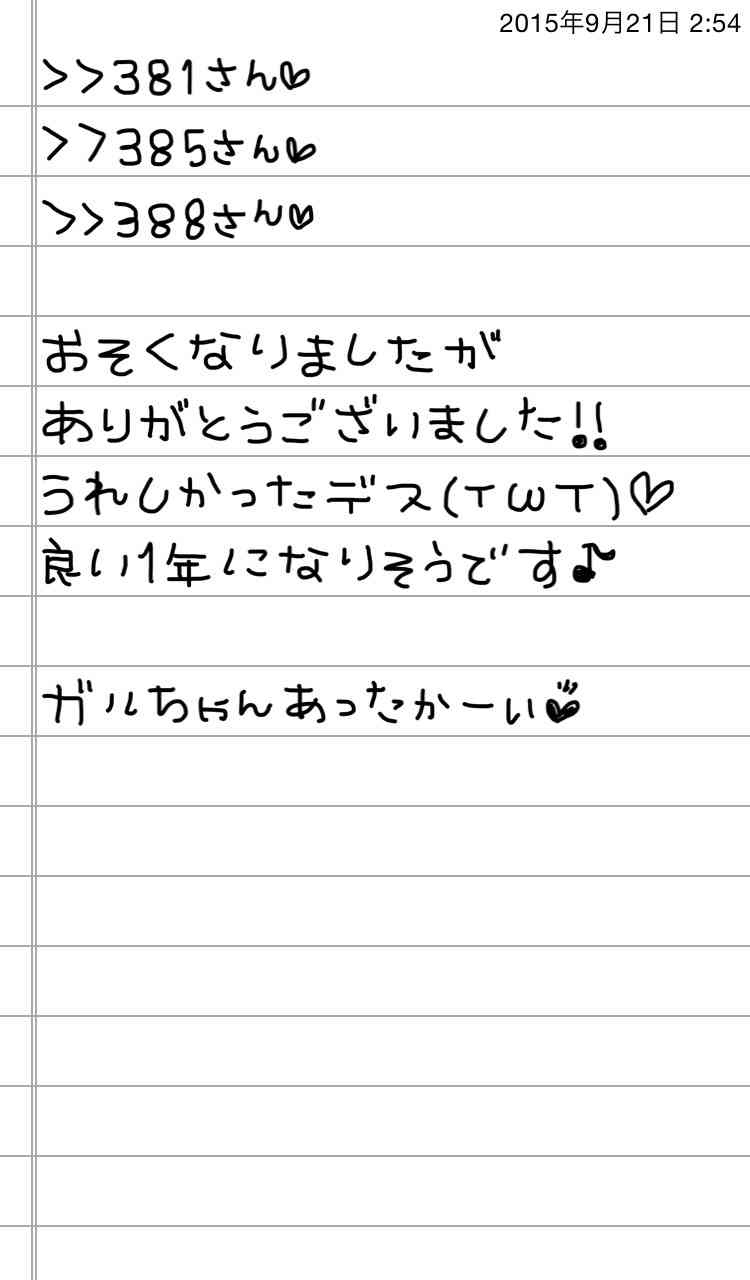 2015年9月21日 2:54
>>381さん♡
>>385さん♡
>>388さん♡
おそくなりましたが
ありがとうございました!!
うれしかったデス(TωT)♡
良い1年になりそうです♪
ガルちゃんあったかーい♥